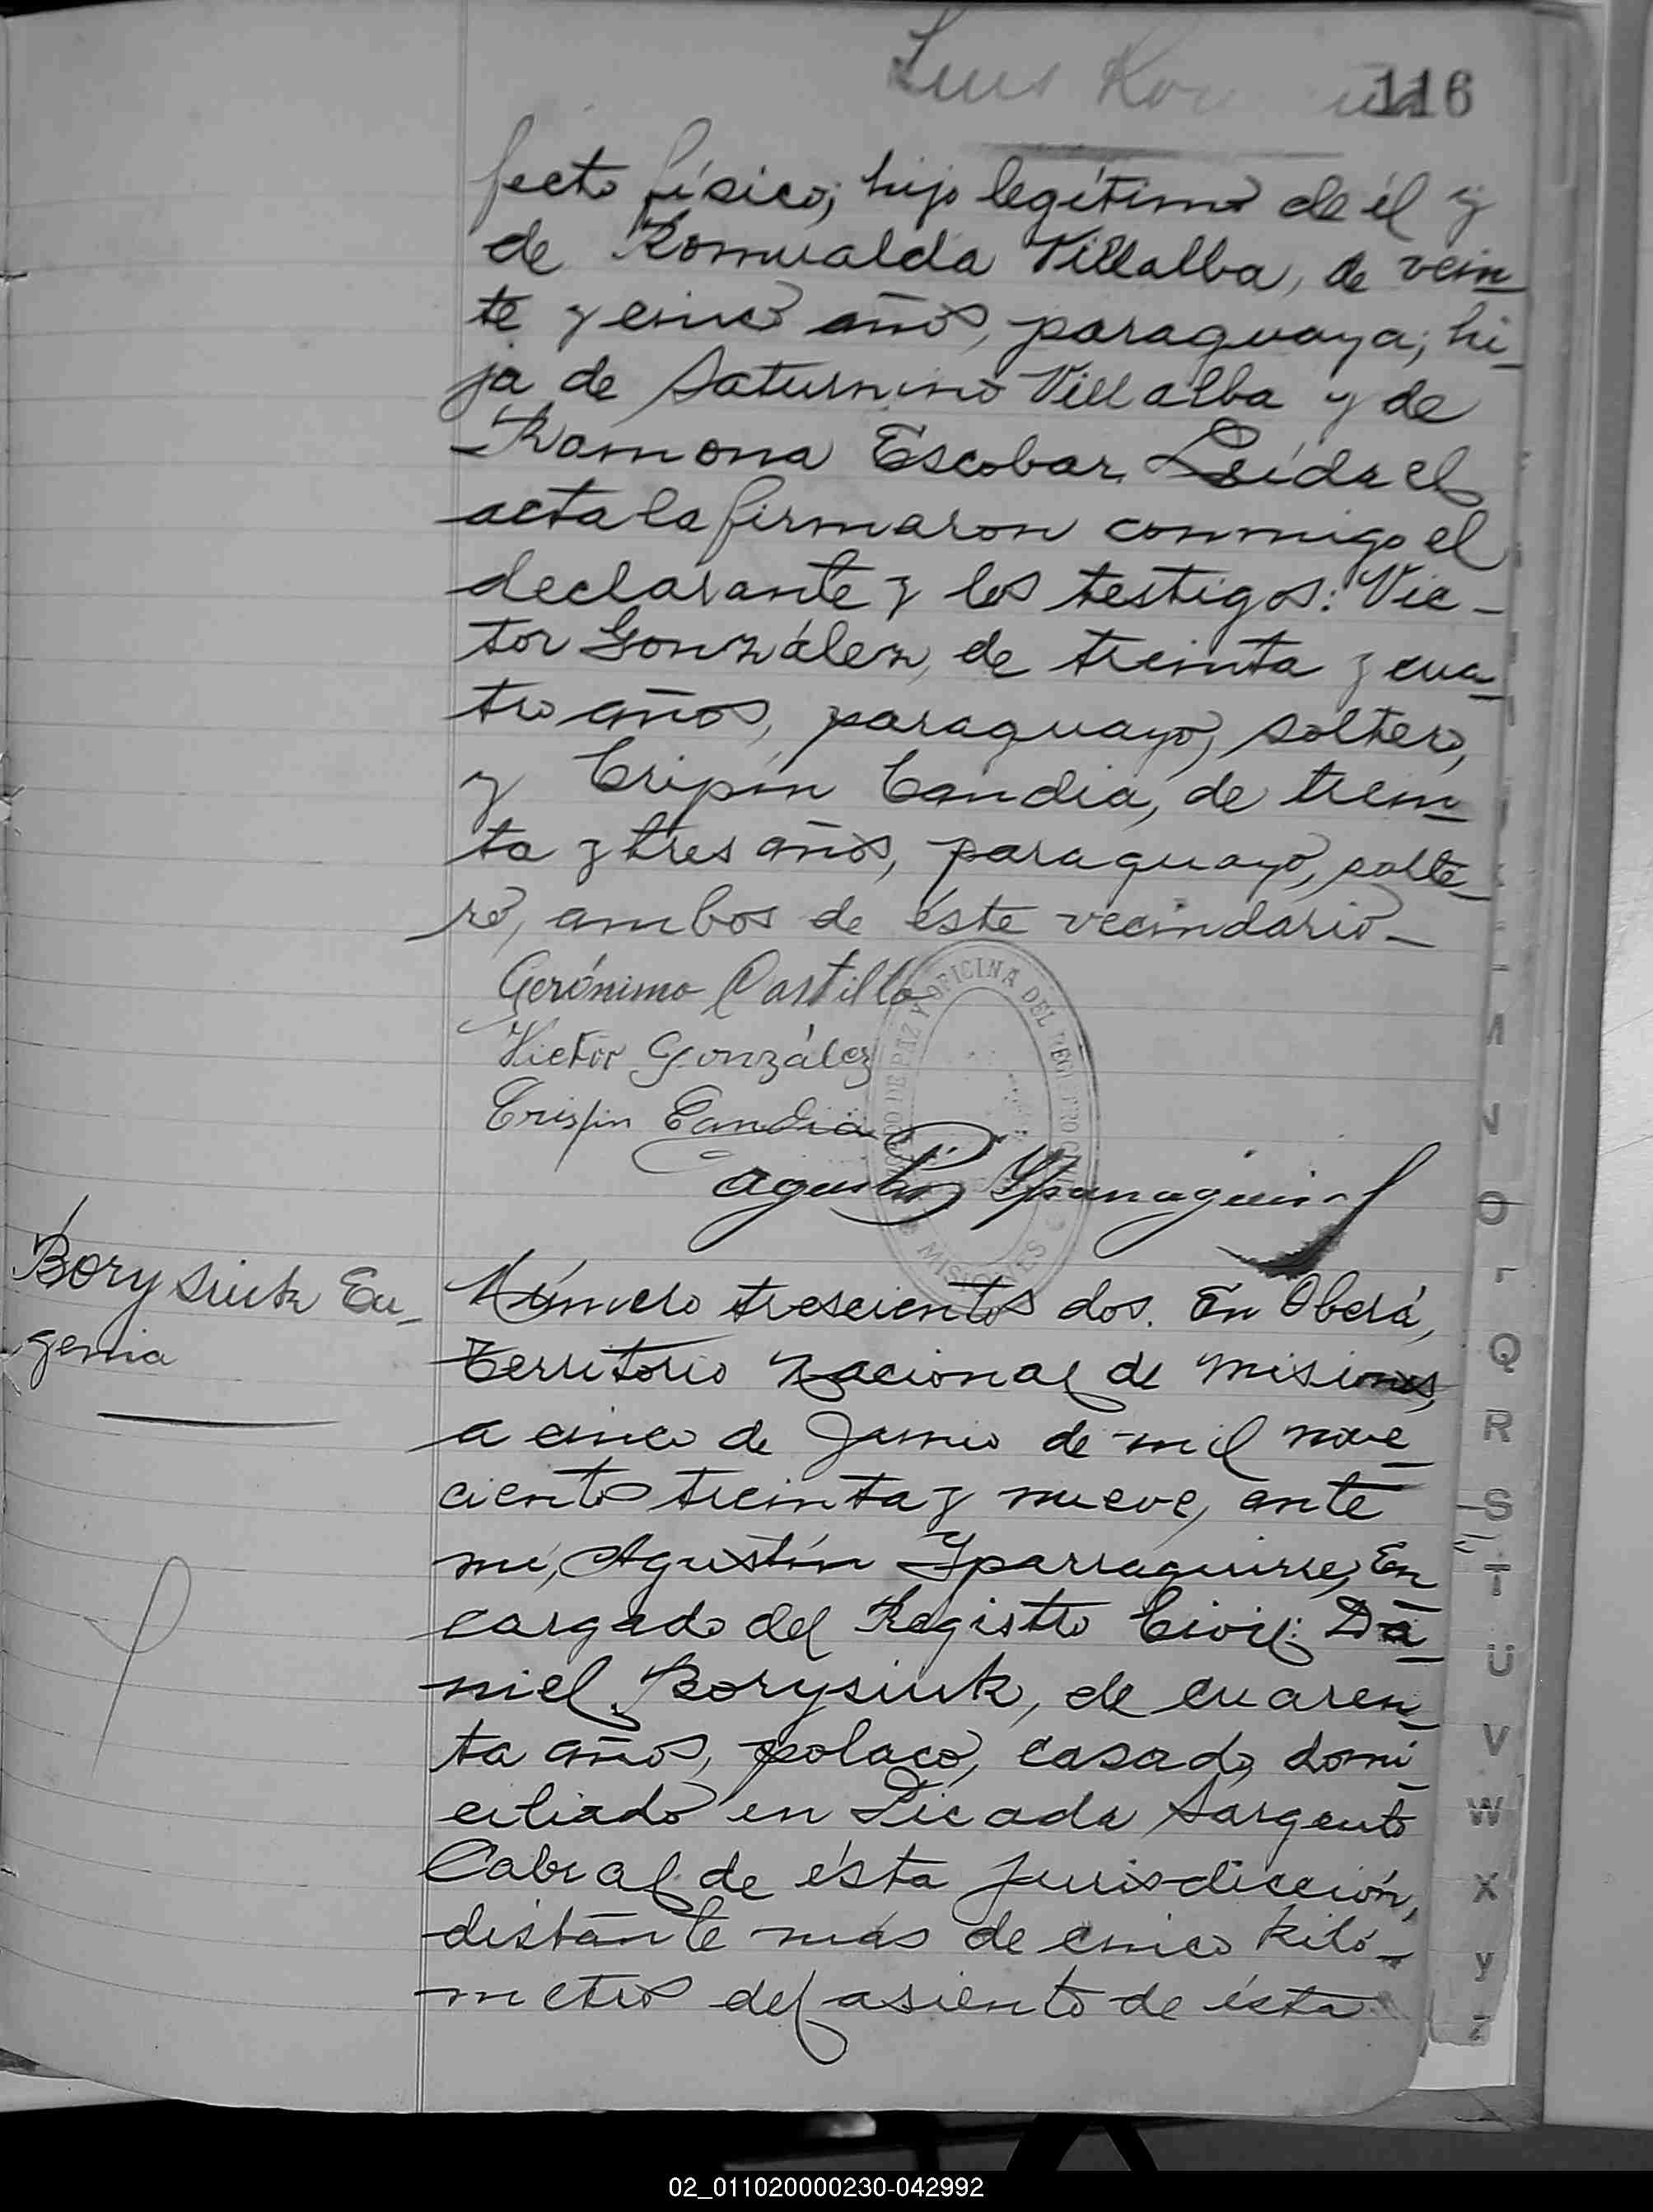 Luis
116
fecto físico; hijo legítimo de él y
de Romualda Villalba, de vein
te y cinco años, paraguaya; hi
ja de Saturnino Villalba y de
Ramona Escobar. Leída el
acta la firmaron conmigo el
declarante y los testigos: Vic-
tor González, de treinta y cua
tro años, paraguayo, soltero,
y Cripín Candia, de trein
ta y tres años, paraguayo, solte
ro, ambos de éste vecindario-
Gerónimo Castillo
Victor González
Crispin Candia
Agustin Yparraguirre
JUZGADO DE PAZ Y OFICINA DEL REGISTRO CIVIL
MISIONES
Borysiuk Eu-
genia
Número trescientos dos. En Oberá,
Territorio Nacional de Misiones,
a cinco de Junio de mil nove
cientos treinta y nueve, ante
mí, Agustín Yparraguirre, En
cargado del Registro Civil: Da
niel Borysiuk, de cuaren
ta años, polaco, casado, domi
ciliado en Picada Sargento
Cabral de ésta jurisdicción,
distante más de cinco kiló-
metros del asiento de ésta
Q
R
S
T
U
V
W
X
y
z
02_011020000230-042992